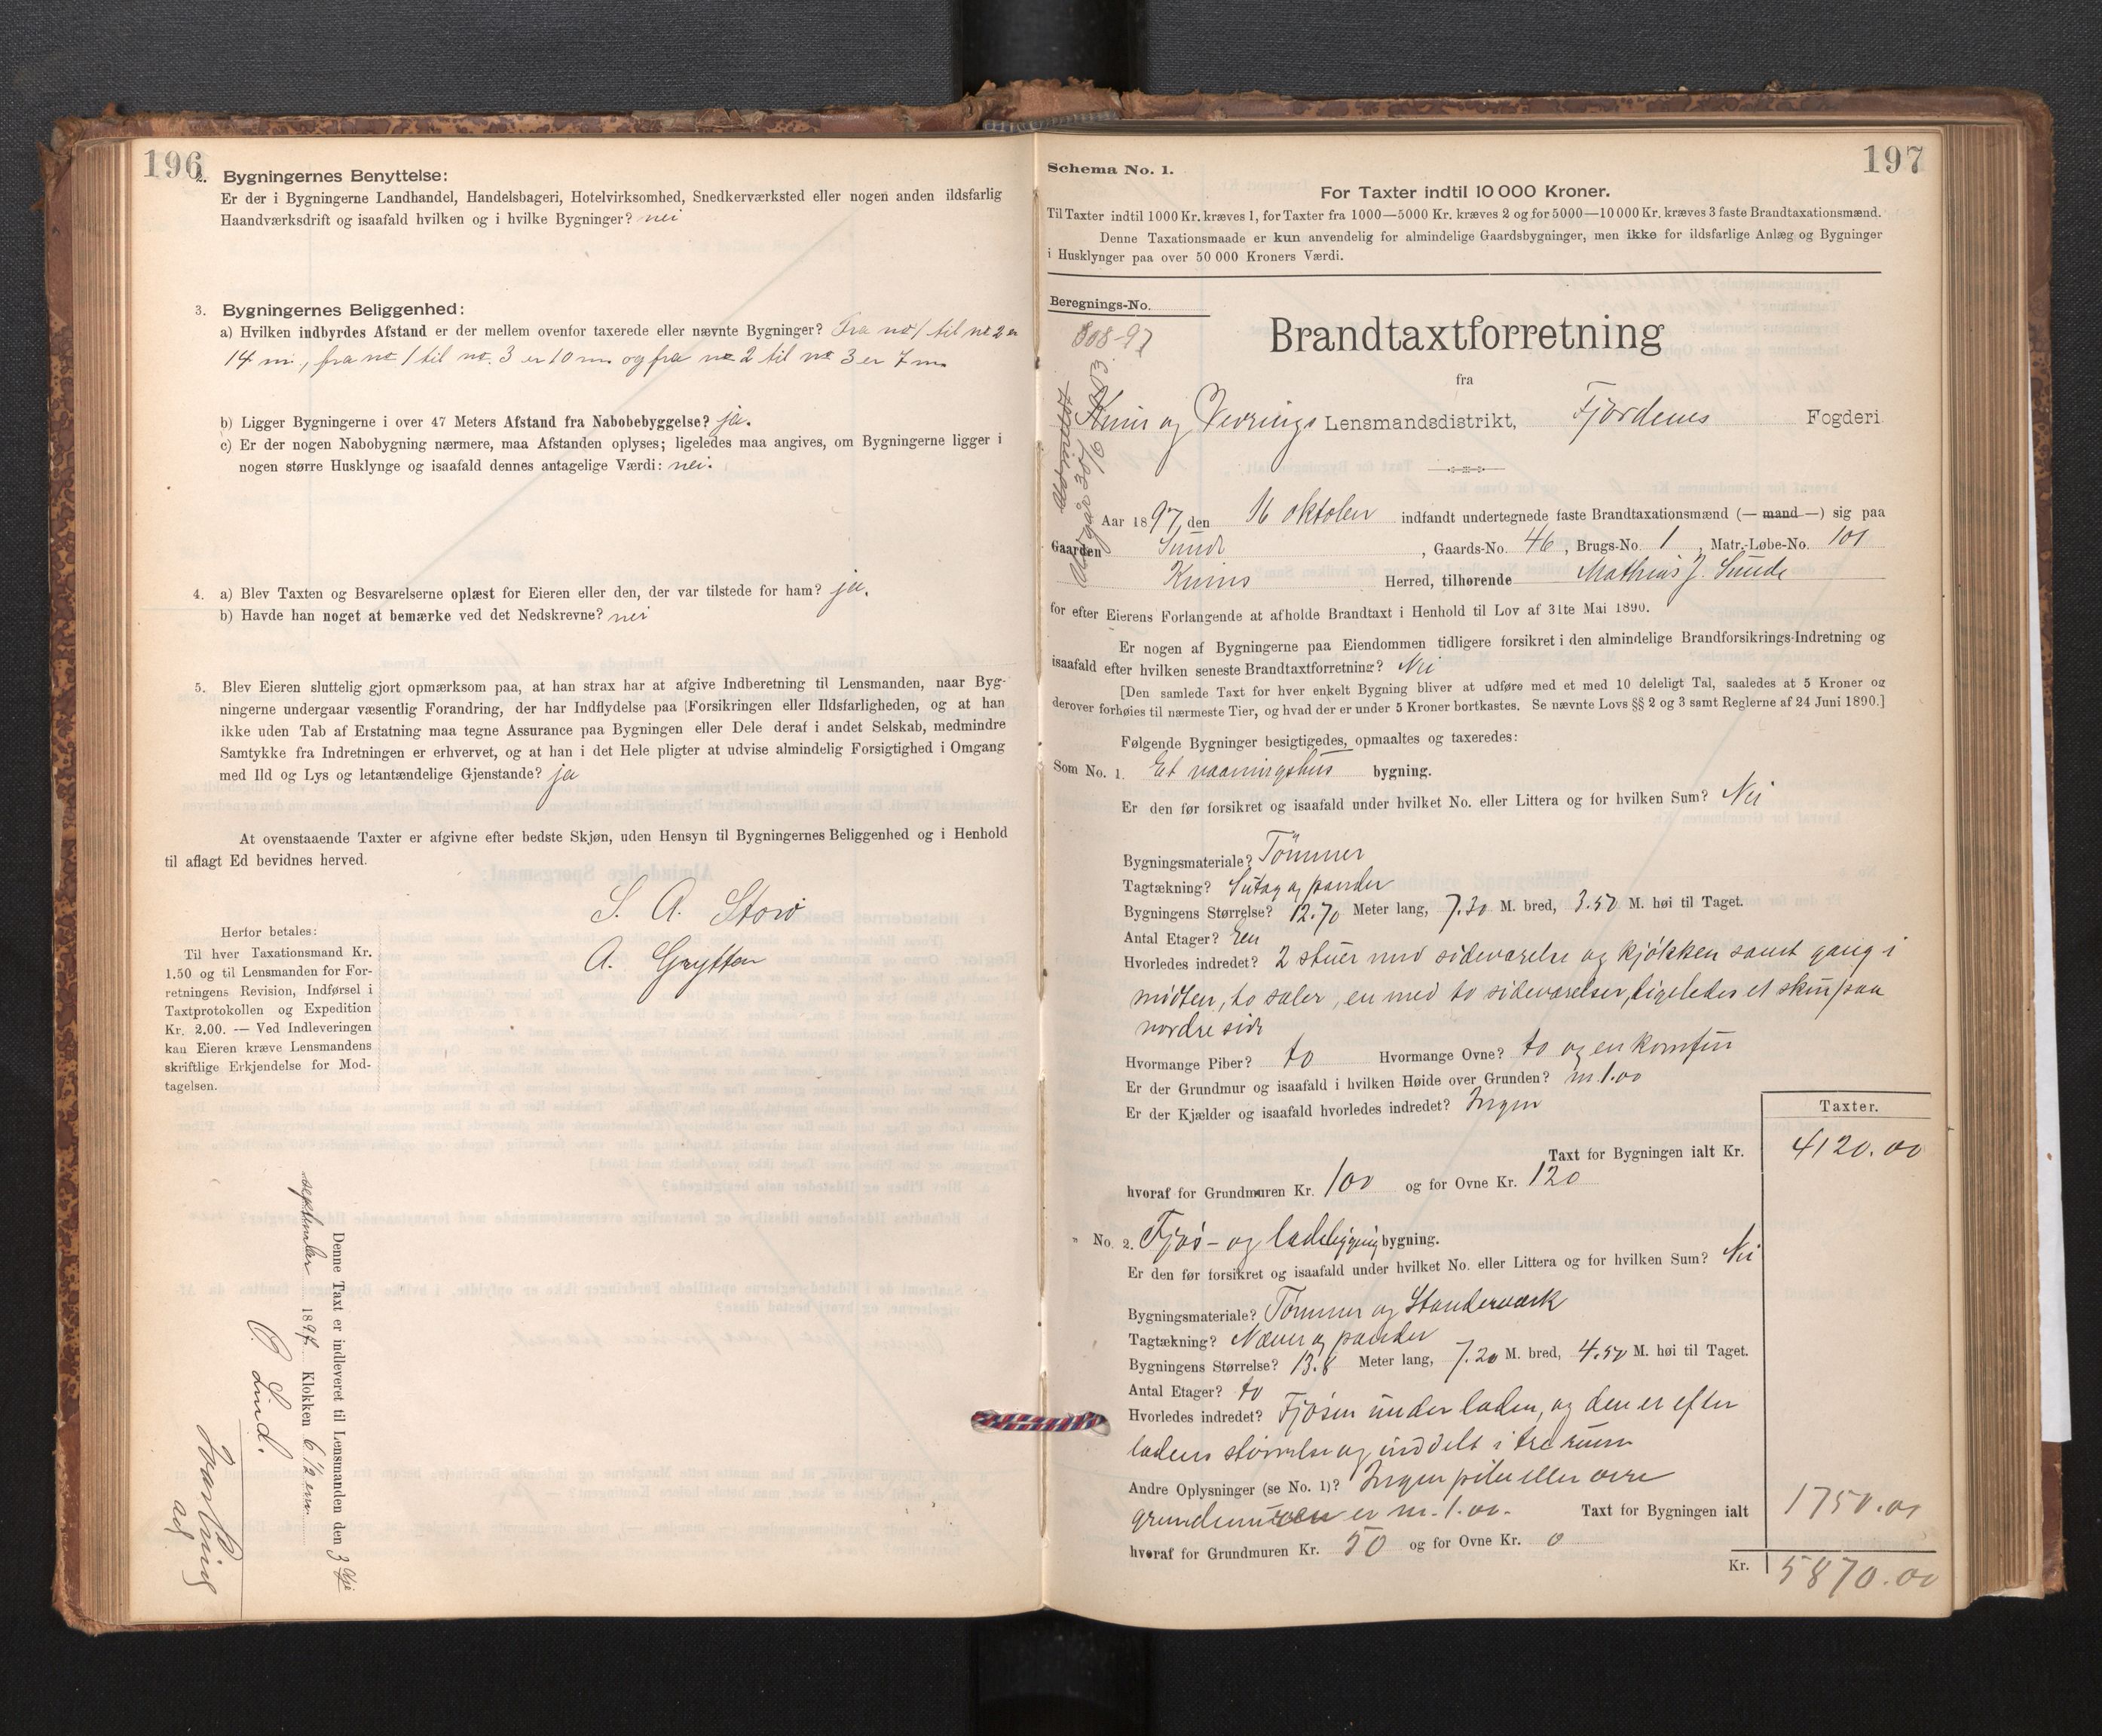 196
2. Bygningernes Benyttelse:
Er der i Bygningerne Landhandel, Handelsbageri, Hotelvirksomhed, Snedkerværksted eller nogen anden ildsfarlig
Haandværksdrift og isaafald hvilken og i hvilke Bygninger? nei
3. Bygningernes Beliggenhed:
a) Hvilken indbyrdes Afstand er der mellem ovenfor taxerede eller nævnte Bygninger? Fra no 1 til no 2 er
14 m., fra no 1 til no. 3 er 10 m. og fra no 2 til no 3 er 7 m.
b) Ligger Bygningerne i over 47 Meters Afstand fra Nabobebyggelse? ja.
c) Er der nogen Nabobygning nærmere, maa Afstanden oplyses; ligeledes maa angives, om Bygningerne ligger i
nogen større Husklynge og isaafald dennes antagelige Værdi: nei.
4. a) Blev Taxten og Besvarelserne oplæst for Eieren eller den, der var tilstede for ham? ja.
b) Havde han noget at bemærke ved det Nedskrevne? nei
5. Blev Eieren sluttelig gjort opmærksom paa, at han strax har at afgive Indberetning til Lensmanden, naar Byg-
ningerne undergaar væsentlig Forandring, der har Indflydelse paa Forsikringen eller Ildsfarligheden, og at han
ikke uden Tab af Erstatning maa tegne Assurance paa Bygningen eller Dele deraf i andet Selskab, medmindre
Samtykke fra Indretningen er erhvervet, og at han i det Hele pligter at udvise almindelig Forsigtighed i Omgang
med Ild og Lys og letantændelige Gjenstande? ja
At ovenstaaende Taxter er afgivne efter bedste Skjøn, uden Hensyn til Bygningernes Beliggenhed og i Henhold
til aflagt Ed bevidnes herved.
S. A. Storø
A. Grytten
Herfor betales:
Til hver Taxationsmand Kr.
1.50 og til Lensmanden for For-
retningens Revision, Indførsel i
Taxtprotokollen og Expedition
Kr. 2.00. — Ved Indleveringen
kan Eieren kræve Lensmandens
skriftlige Erkjendelse for Mod-
tagelsen.
Denne Taxt er indleveret til Lensmanden den 3dje
september 1897. Klokken 6 1/2 em.
O. Lind.
197
Schema No. 1.
For Taxter indtil 10 000 Kroner.
Til Taxter indtil 1000 Kr. kræves 1, for Taxter fra 1000—5000 Kr. kræves 2 og for 5000—10 000 Kr. kræves 3 faste Brandtaxationsmænd.
Denne Taxationsmaade er kun anvendelig for almindelige Gaardsbygninger, men ikke for ildsfarlige Anlæg og Bygninger
i Husklynger paa over 50 000 Kroners Værdi.
Beregnings-No.
808-97
Brandtaxtforretning
fra
Kinn og Vevrings Lensmandsdistrikt, Fjordenes Fogderi
Aar 1897, den 16 oktober indfandt undertegnede faste Brandtaxationsmænd (— mand —) sig paa
Gaarden Sunde, Gaards-No. 46, Brugs-No. 1, Matr.-Løbe-No. 101
Kinns Herred, tilhørende Mathias J. Sunde
for efter Eierens Forlangende at afholde Brandtaxt i Henhold til Lov af 31te Mai 1890.
Er nogen af Bygningerne paa Eiendommen tidligere forsikret i den almindelige Brandforsikrings-Indretning og
isaafald efter hvilken seneste Brandtaxtforretning? Nei
[Den samlede Taxt for hver enkelt Bygning bliver at udføre med et med 10 deleligt Tal, saaledes at 5 Kroner og
derover forhøies til nærmeste Tier, og hvad der er under 5 Kroner bortkastes. Se nævnte Lovs §§ 2 og 3 samt Reglerne af 24 Juni 1890.]
Følgende Bygninger besigtigedes, opmaaltes og taxeredes:
Som No. 1. Et vaaningshus bygning.
Er den før forsikret og isaafald under hvilket No. eller Littera og for hvilken Sum? Nei
Bygningsmateriale? Tömmer
Tagtækning? Sutag og pander
Bygningens Størrelse? 12.70 Meter lang, 7.30 M. bred, 3.50 M. høi til Taget.
Antal Etager? Een
Hvorledes indredet? 2 stuer med sideværelse og kjökken samt gang i
midten, to saler, en med to sideværelser, ligeledes et skur paa
nordre side
Hvormange Piber? to Hvormange Ovne? to og en komfur
Er der Grundmur og isaafald i hvilken Høide over Grunden? m. 1.00
Er der Kjælder og isaafald hvorledes indredet? Ingen
Taxter.
Taxt for Bygningen ialt Kr. 4120.00
hvoraf for Grundmuren Kr. 100 og for Ovne Kr. 120
" No. 2. Fjøs- og ladebygning bygning.
Er den før forsikret og isaafald under hvilket No. eller Littera og for hvilken Sum? Nei
Bygningsmateriale? Tømmer og Standerværk
Tagtækning? Næver og pander
Bygningens Størrelse? 13.8 Meter lang, 7.20 M. bred, 4.50 M. høi til Taget.
Antal Etager? to
Hvorledes indredet? Fjøsen under laden, og den er efter
ladens størrelse og inddelt i tre rum
Andre Oplysninger (se No. 1)? Ingen pibe eller ovne
grundmuren er m. 1.00. Taxt for Bygningen ialt 1750.00
hvoraf for Grundmuren Kr. 50 og for Ovne Kr. 0
Kr. 5870.00